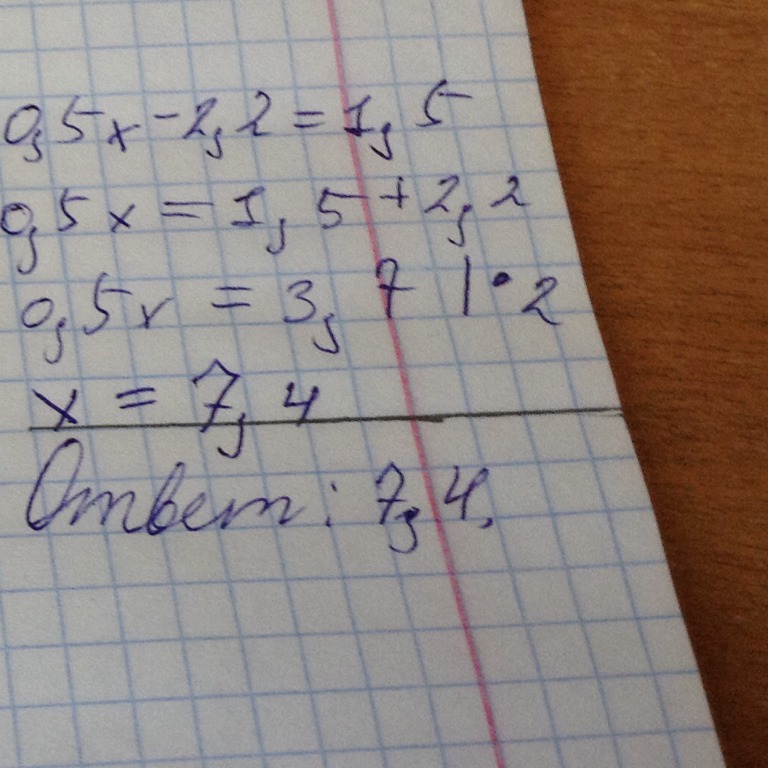 0,5x-2,2=1,5
0,5x=1,5+2,2
0,5x=3,7 |·2
x=7,4
Ответ: 7,4.